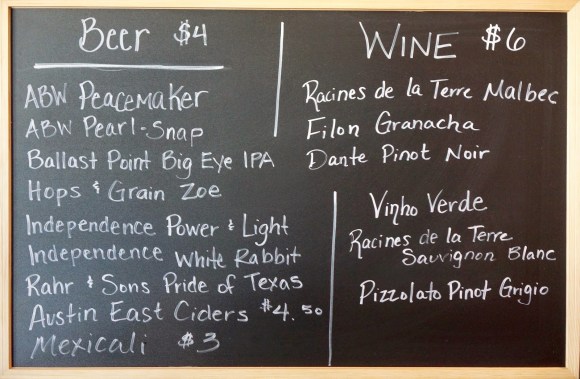 Beer $4
ABW Peacemaker
ABW Pearl-Snap
Ballast Point Big Eye IPA
Hops & Grain Zoe
Independence Power & Light
Independence White Rabbit
Rahr & Sons Pride of Texas
Austin East Ciders $4.50
Mexicali $3
WINE $6
Racines de la Terre Malbec
Filon Granacha
Dante Pinot Noir
Vinho Verde
Racines de la Terre
Sauvignon Blanc
Pizzolato Pinot Grigio